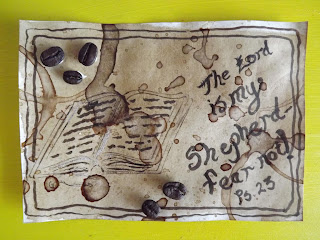 The Lord
is my
Shepherd-
fear not!
Ps. 23